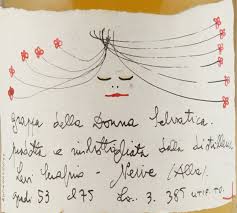 grappa della Donna Selvatica.
prodotta e imbottigliata dalla distilleria
Levi Serafino - Neive (Alba).
gradi 53 cl 75 Lic. 3. 385 UTIF TO.